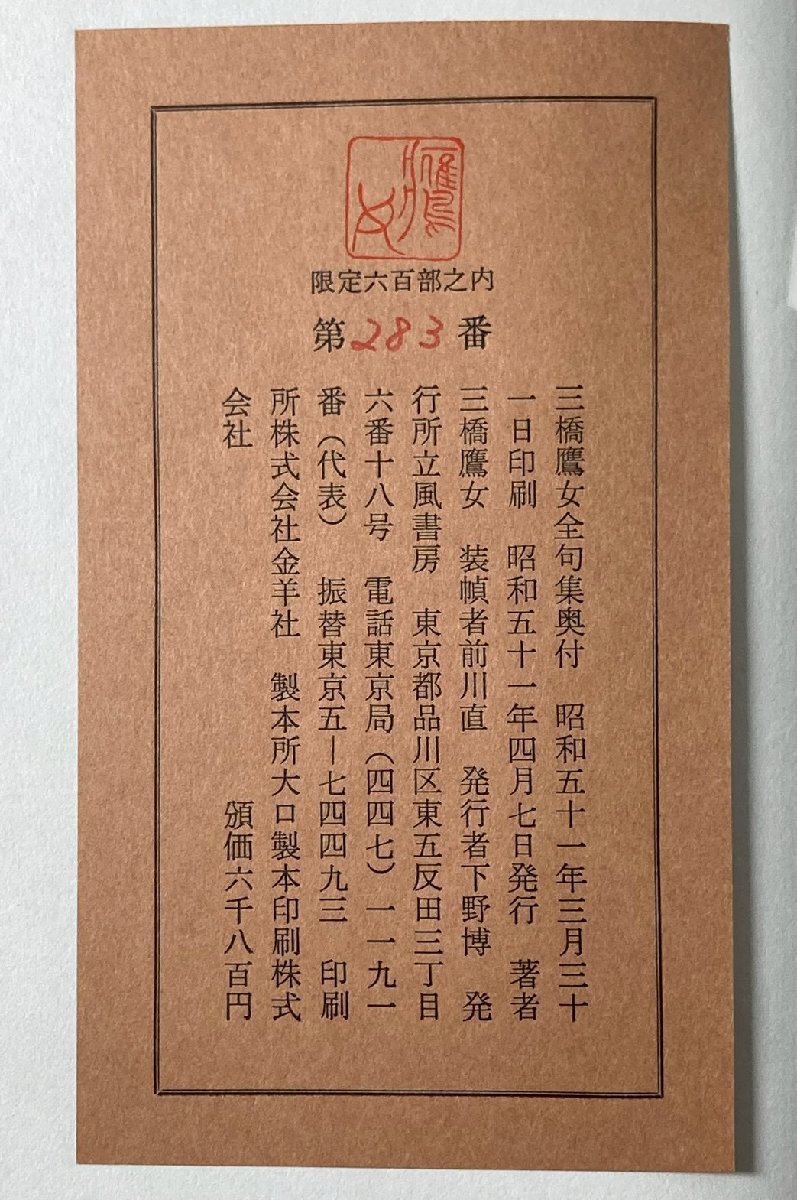 鷹女
限定六百部之内
第283番
三橋鷹女全句集奥付　昭和五十一年三月三十
一日印刷　昭和五十一年四月七日発行　著者
三橋鷹女　装幀者前川直　発行者下野博　発
行所立風書房　東京都品川区東五反田三丁目
六番十八号　電話東京局(四四七)一一九一
番(代表)　振替東京五—七四四九三　印刷
所株式会社金羊社　製本所大口製本印刷株式
会社　頒価六千八百円